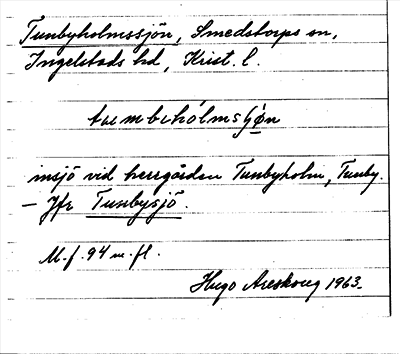 Tunbyholmssjön, Smedstorps sn,
Ingelstads hd, Krist. l.
insjö vid herrgården Tunbyholm, Tunby.
— Jfr Tunbysjö.
M.f. 94 m. fl.
Hugo Areskoug 1963.